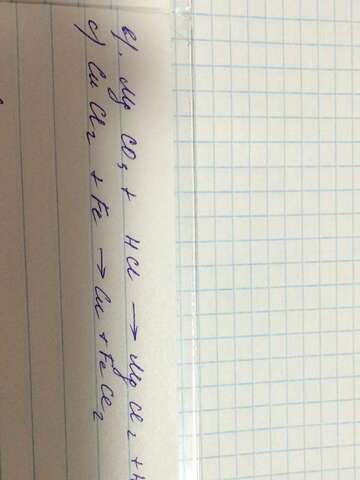 в). Mg CO3 + HCl → Mg Cl2 + H
c) Cu Cl2 + Fe → Cu + Fe Cl2